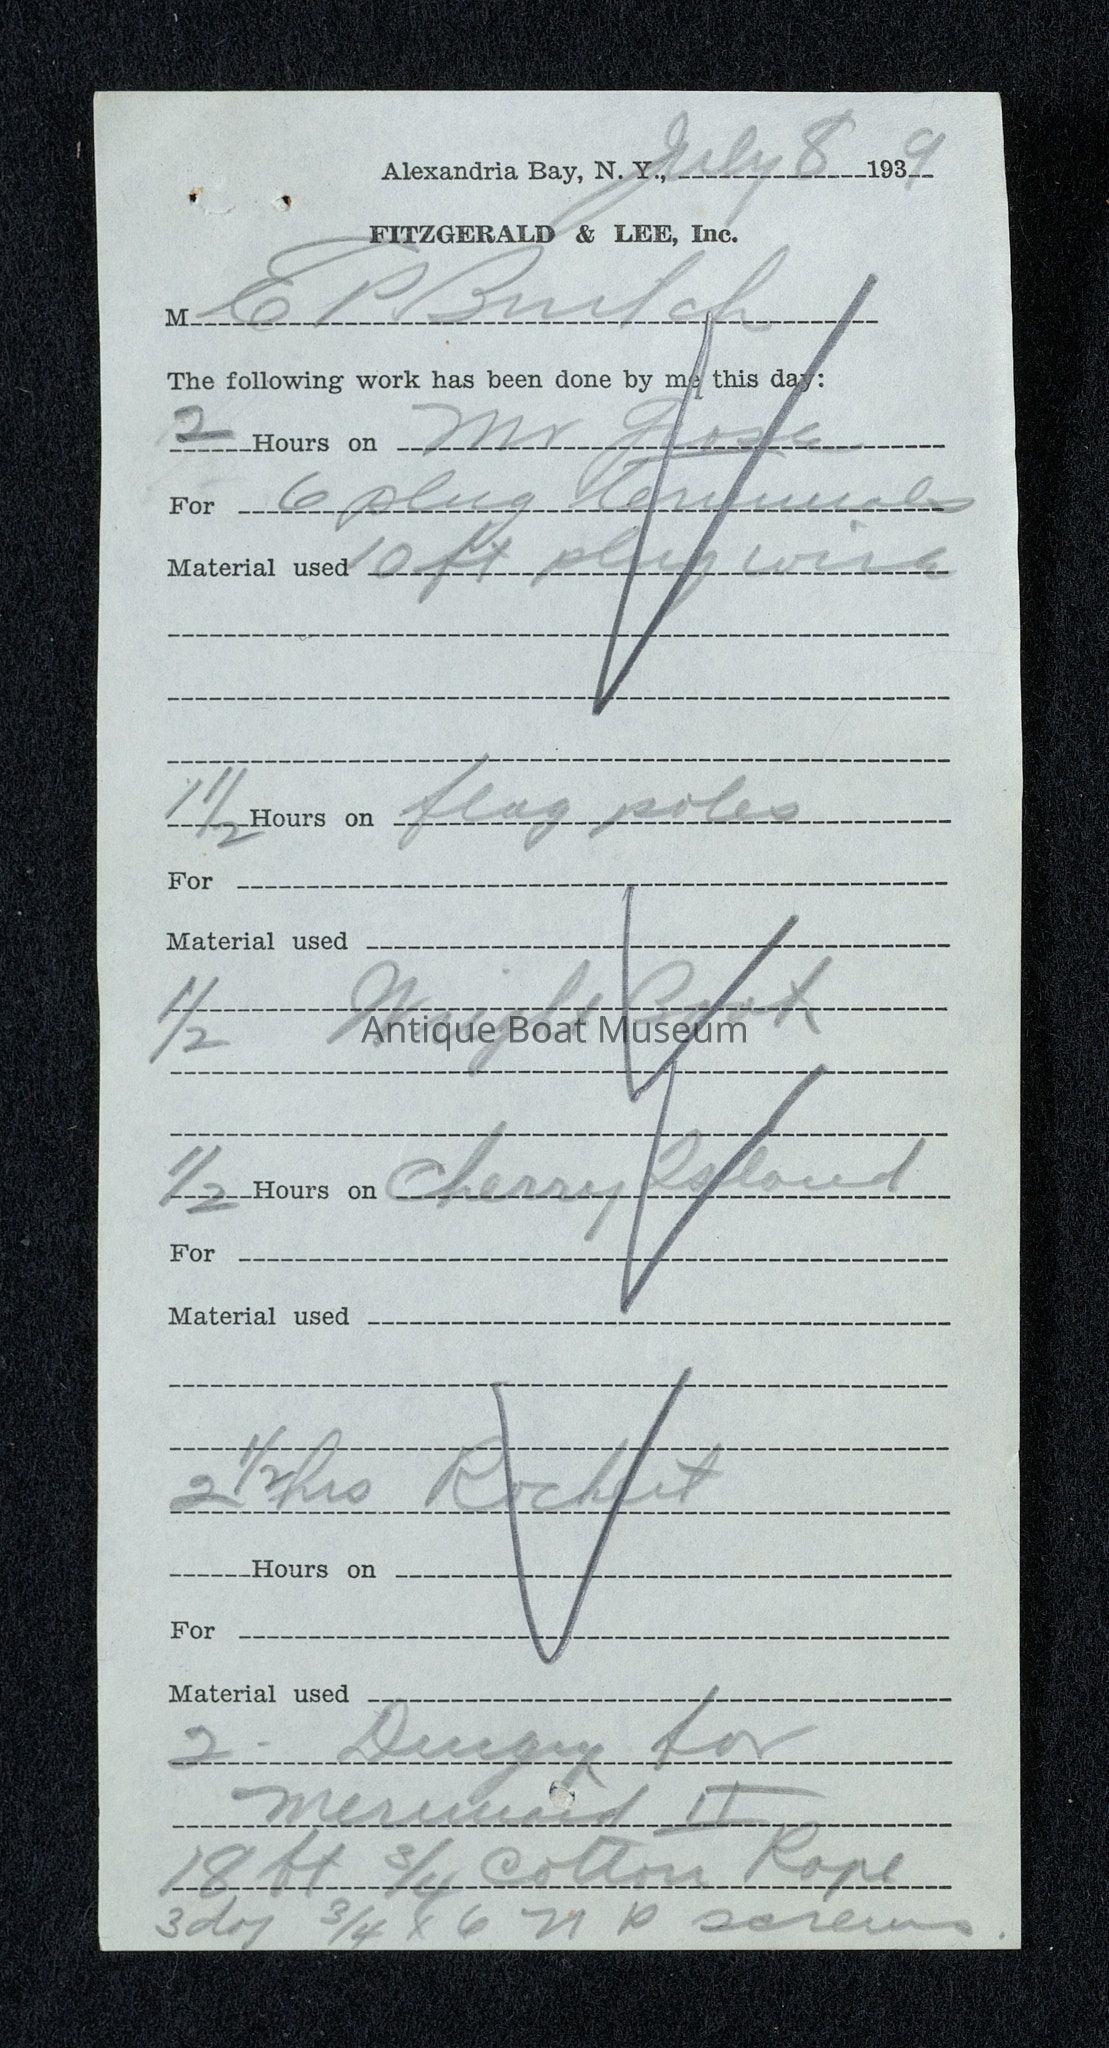 Alexandria Bay, N. Y., July 8 1939
FITZGERALD & LEE, Inc.
M E P Burtch
The following work has been done by me this day:
2 Hours on Mr
For 6 plug terminals
Material used 10 ft plug wire
1 1/2 Hours on flag poles
For
Material used
1/2 Wright Boat
Antique Boat Museum
1/2 Hours on Cherry Island
For
Material used
2 1/2 hrs Rocket
Hours on
For
Material used
2 - Dingy for
Mermaid II
18 ft 3/4 Cotton Rope
3 doz 3/4 x 6 N P screws.